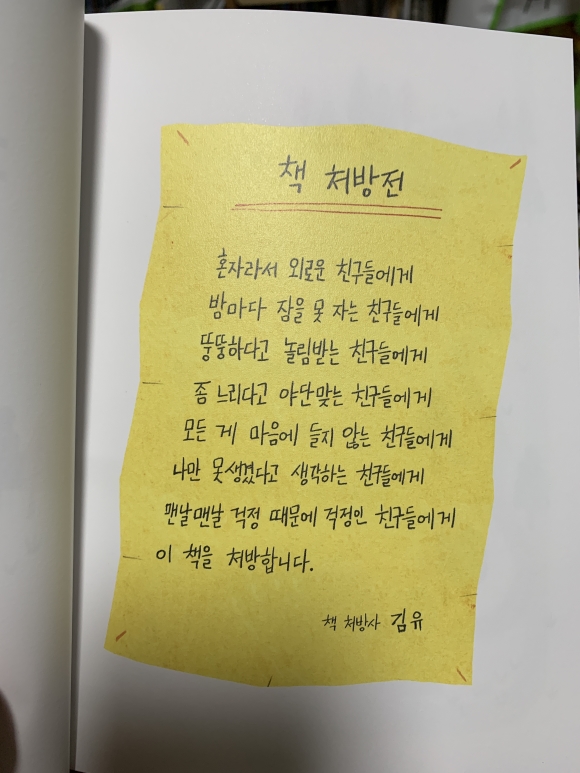 책 처방전
혼자라서 외로운 친구들에게
밤마다 잠을 못 자는 친구들에게
뚱뚱하다고 놀림받는 친구들에게
좀 느리다고 야단맞는 친구들에게
모든 게 마음에 들지 않는 친구들에게
나만 못생겼다고 생각하는 친구들에게
맨날맨날 걱정 때문에 걱정인 친구들에게
이 책을 처방합니다.
책 처방사 김유